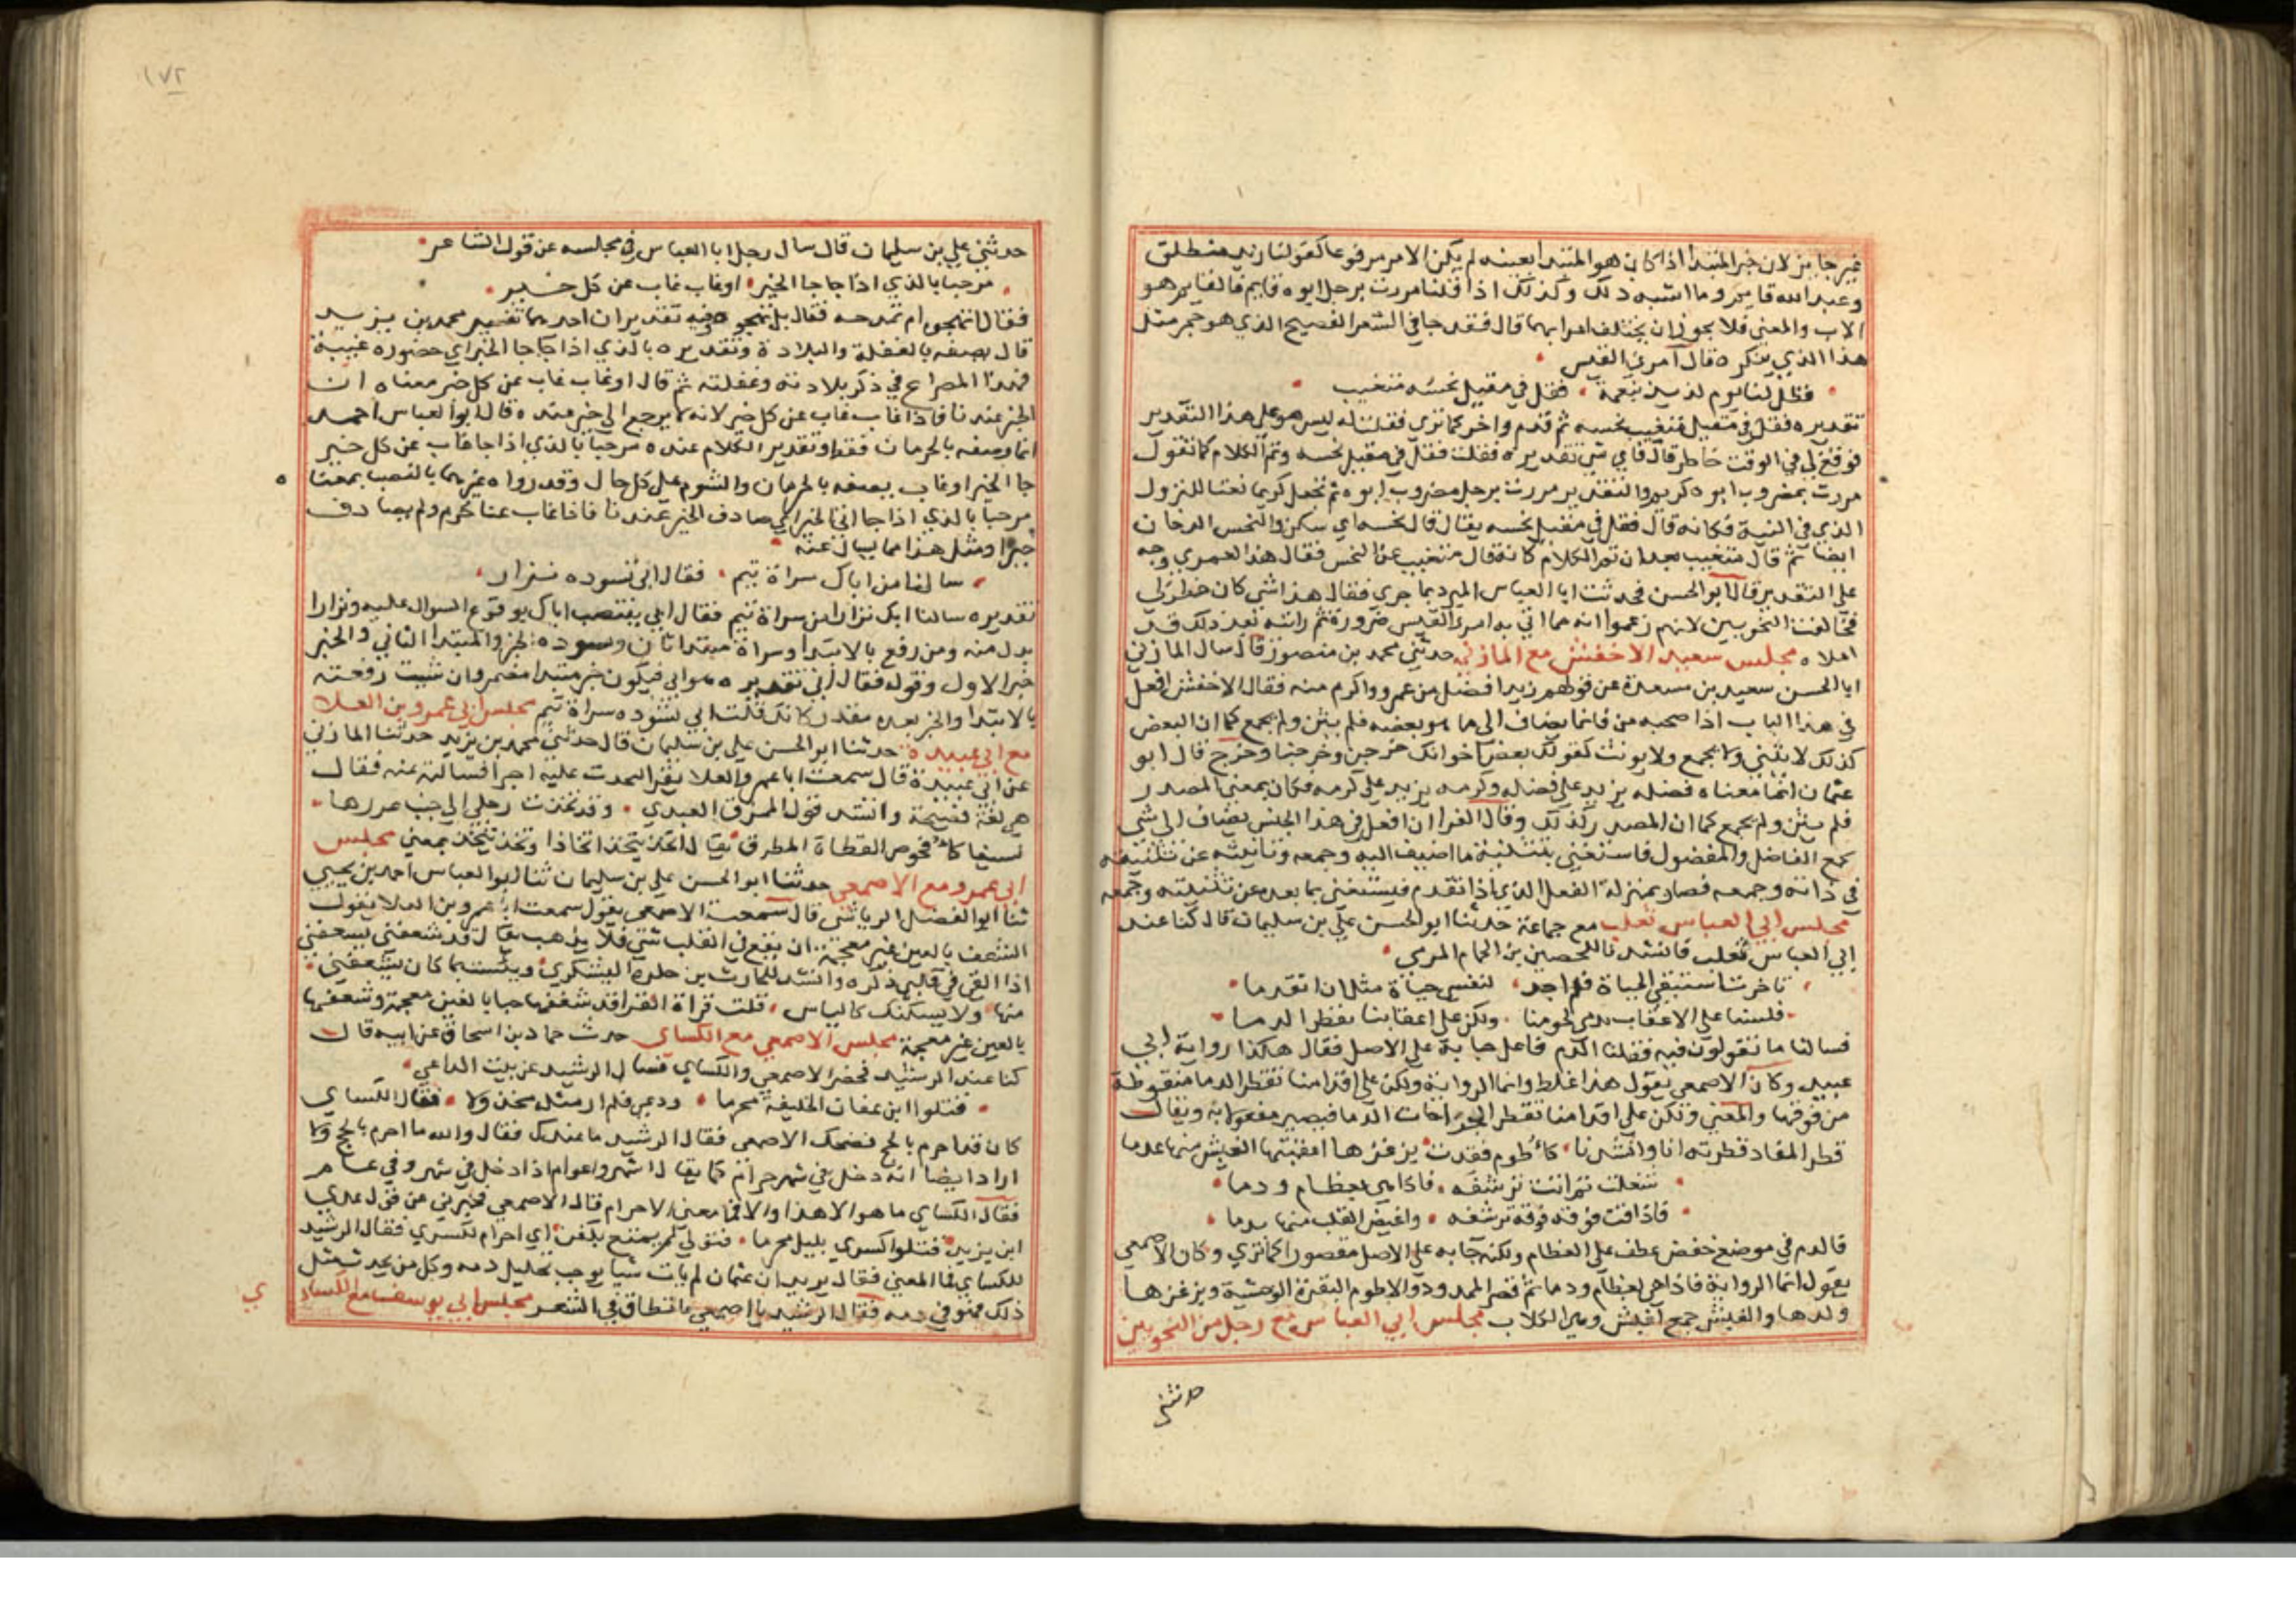 غير جايز لان خبر المبتدا اذا كان هو المبتدا بعينه لم يكن الامر مرفوعا كقولنا زيد منطلق
وعبد الله قايم وما اشبه ذلك وكذلك اذا قلنا مررت برجل ابوه قايم فالقايم هو
الاب والمعنى فلا يجوز ان يختلف اعرابهما قال فقد جا في الشعر الفصيح الذي هو حجر مثل
هذا الذي ينكره قال امرئ القيس
فظل لنا يوم لذيذ بنعمة فقل في مقيل نحسه متغيب
تقديره فقل في مقيل متغيب نحسه ثم قدم واخر كما ترى فقلت له ليس هو على هذا التقدير
فوقع لي في الوقت خاطر قال فاي شي تقديره فقلت فقل في مقيل نحسه وتم الكلام كما تقول
مررت بمضروب ابوه كريم والتقدير مررت برجل مضروب ابوه ثم تجعل كريما نعتا للنزول
الذي في النية فكانه قال فقل في مقيل نحسه يقال قال نحسه اي سكن والنحس الدخان
ايضا ثم قال متغيب بعد ان تم الكلام كانه قال متغيب عن النحس فقال هذا لعمري وجه
على التقدير قال ابو الحسن فحدثت ابا العباس المبرد بما جرى فقال هذا شي كان خطر لي
فخالفت النحويين لانهم زعموا انه مما اتى به امرئ القيس ضرورة ثم رايته بعد ذلك قد
املاه مجلس سعيد الاخفش مع المازني حدثني محمد بن منصور قال سال المازني
ابا الحسن سعيد بن مسعدة عن قولهم زيد افضل من عمرو واكرم منه فقال الاخفش افعل
في هذا الباب اذا صحبه من فانما يضاف الى ما هو بعضه فلم يثن ولم يجمع كما ان البعض
كذلك لا يثني ولا يجمع ولا يونث كقولك بعض اخوانك خرجن وخرجتا وخرج قال ابو
عثمان انما معناه فضله يزيد على فضله وكرمه يزيد على كرمه فكان بمعنى المصدر
فلم يثن ولم يجمع كما ان المصدر كذلك وقال الفرا ان افعل في هذا الجنس يضاف الى شي
يجمع الفاضل والمفضول فاستغني بتثنية ما اضيف اليه وجمعه وتانيثه عن تثنيته
في ذاته وجمعه فصار بمنزلة الفعل الذي اذا تقدم فيستغنى بما بعده عن تثنيته وجمعه
مجلس ابي العباس ثعلب مع جماعة حدثنا ابو الحسن علي بن سليمان قال كنا عند
ابي العباس ثعلب فانشدنا للحصين بن الحمام المري
تاخرت استبقي الحياة فلم اجد لنفسي حياة مثل ان اتقدما
فلسنا على الاعقاب تدمى كلومنا ولكن على اعقابنا يقطر الدما
فسالنا ما تقولون فيه فقلنا الدم فاعل جا به على الاصل فقال هكذا رواية ابي
عبيد وكان الاصمعي يقول هذا غلط وانما الرواية ولكن على اقدامنا تقطر الدما منقوطة
من فوقها والمعنى ولكن على اقدامنا تقطر الجراحات الدما فيصير مفعولا به ويقال
قطر الما وقطرته انا وانشدنا كاطوم فقدت برغزها اعقبتها الغبش منها عدما
شغلت ثم انت ترشفه فاذا هي بعظام ودما
فاذا فت فوقه فوقة ترشفه وافيض القلب منها بدما
فالدم في موضع خفض عطف على العظام ولكنه جا به على الاصل مقصورا كما ترى وكان الاصمعي
يقول انما الرواية فاذا هي بعظام ودما ثم قصر الممدود والاطوم البقرة الوحشية وبرغزها
ولدها والغبش جمع اغبش وهي الكلاب مجلس ابي العباس مع رجل من النحويين
حدثني
١٧٢
حدثني علي بن سليمان قال سال رجل ابا العباس في مجلسه عن قول الشاعر
مرحبا بالذي اذا جا جا الخير اوغاب غاب عن كل خير
فقال اتهجو ام تمدحه فقال بل تهجوه وفيه تقديران احدهما تفسير محمد بن يزيد
قال يصفه بالغفلة والبلادة وتقديره بالذي اذا جا جا الخير اي حضوره غيبة
فهذا المصراع في ذكر بلادته وغفلته ثم قال اوغاب غاب عن كل خير معناه ان
الخير عندنا فاذا غاب غاب عن كل خير لانه لا يرجع الى خير عنده وقال ابو العباس احمد
انما وصفه بالحرمان فقط وتقدير الكلام عنده مرحبا بالذي اذا جا غاب عن كل خير
جا الخير اوغاب يصفه بالحرمان والشوم على كل حال وقد رواه غيرهما بالنصب بمعنى
مرحبا بالذي اذا جا اتى الخير اي صادف الخير عندنا فاذا غاب عنا حرم ولم يصادف
خيرا ومثل هذا مما يسال عنه
سالنا من اباك سراة تيم فقال ابي تسوده نزار
تقديره سالنا اباك نزارا من سراة تيم فقال ابي ينتصب اباك بوقوع السوال عليه ونزارا
بدل منه ومن رفع بالابتدا وسراة مبتدا ثان وسوده الخبر والمبتدا الثاني والخبر
خبر الاول وقوله فقال ابي تقديره هو ابي فيكون خبر مبتدا مضمر وان شيت رفعته
بالابتدا والخبر بعده مقدر كانك قلت ابي تسوده سراة تيم مجلس ابي عمرو بن العلا
مع ابي عبيدة حدثنا ابو الحسن علي بن سليمان قال حدثني محمد بن يزيد حدثنا المازني
عن ابي عبيدة قال سمعت ابا عمرو بن العلا يقرا لتخذت عليه اجرا فسالته عنه فقال
هي لغة فصيحة وانشد قول الممزق العبدي وقد تخذت رجلي الى جنب غرزها
نسيفا كافحوص القطاة المطرق يقال اتخذ يتخذ اتخاذا وتخذ يتخذ بمعنى مجلس
ابي عمرو مع الاصمعي حدثنا ابو الحسن علي بن سليمان ثنا ابو العباس احمد بن يحيى
ثنا ابو الفضل الرياشي قال سمعت الاصمعي يقول سمعت ابا عمرو بن العلا يقول
الشعف بالعين غير معجمة ان يقع في القلب شي فلا يذهب يقال قد شعفني يشعفني
اذا القي في قلبي ذكره وانشد للحارث بن حلزة اليشكري ويئست مما كان يشعفني
منها ولا يسليك كالياس قلت قراة الفرا قد شغفها حبا بالغين معجمة وشعفها
بالعين غير معجمة مجلس الاصمعي مع الكساي حدث حماد بن اسحاق عن ابيه قال
كنا عند الرشيد فحضر الاصمعي والكساي فسال الرشيد عن بيت الراعي
قتلوا ابن عفان الخليفة محرما ودعى فلم ار مثله مخذولا فقال الكساي
كان قد احرم بالحج فضحك الاصمعي فقال الرشيد ما عندك فقال والله ما احرم بالحج ولا
اراد ايضا انه دخل في شهر حرام كما يقال اشهر واعوام اذا دخل في شهر وفي عام
فقال الكساي ما هو الا هذا والا فما معنى الاحرام قال الاصمعي فخبرني عن قول عدي
ابن يزيد قتلوا كسرى بليل محرما فتولى لم يمتع بكفن اي احرام لكسرى فقال الرشيد
للكساي فما المعنى فقال يريد ان عثمان لم يات شيا يوجب تحليل دمه وكل من يحدث مثل
ذلك فهو في ذمه فقال الرشيد يا اصمعي ما تطاق في الشعر مجلس ابي يوسف مع الكسا
ي